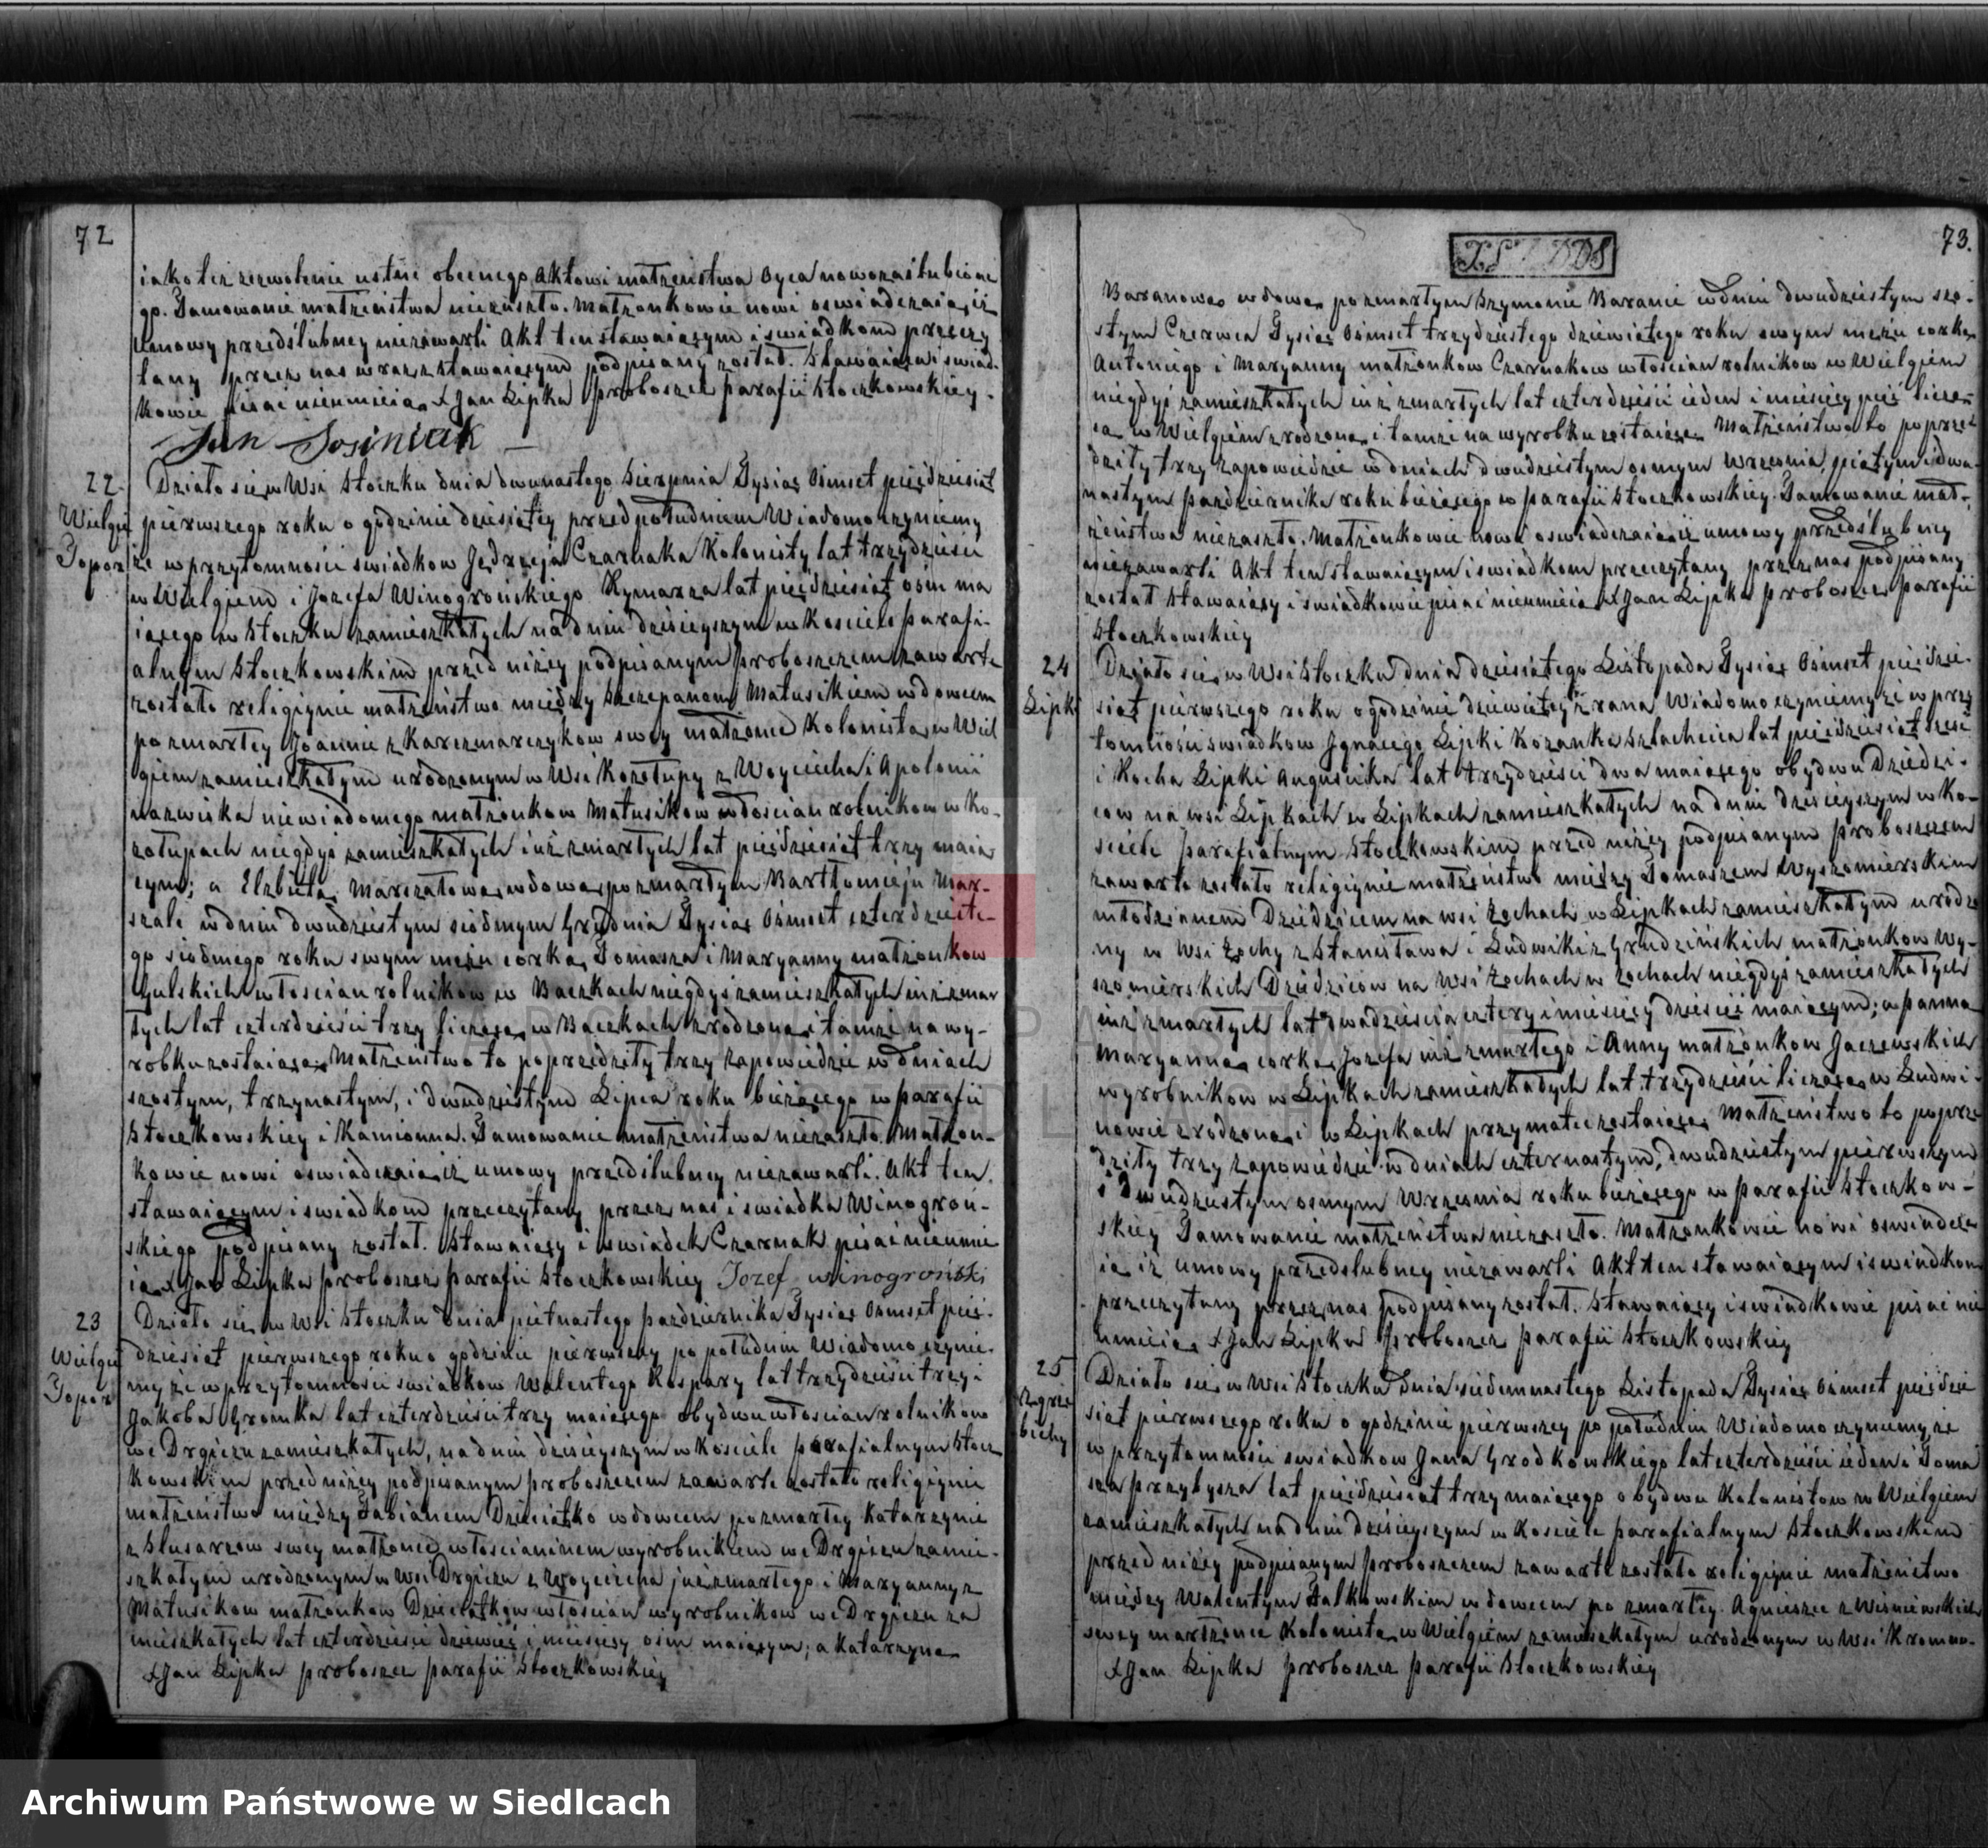 72
iako też zezwolenie ustne obecnego Aktowi małżeństwa Oyca nowozaślubione
go. Tamowanie małżeństwa niezaszło. Małżonkowie nowi oswiadczaią iż
umowy przedślubney niezawarli Akt ten stawaiącym i swiadkom przeczy
tany przez nas wraz z stawaiącym podpisany został. Stawaiąca i swiad-
kowie pisać nieumieią XJan Lipka proboszcz parafii Stoczkowskiey.
Jan Sosiniak
22.
Wielgie
Topor
Działo się w Wsi Stoczku dnia dwunastego Sierpnia Tysiąc Ośmset pięździesiąt
pierwszego roku o godzinie dziesiątey przed południem Wiadomo czyniemy
że w przytomności swiadkow Jędrzeja Czarnaka Kolonisty lat trzydzieści
w Wielgiem i Jozefa Winogrońskiego Rymarza lat pięździesiąt ośm ma
iącego w Stoczku zamieszkałych na dniu dzisieyszym w Kosciele parafi-
alnym Stoczkowskim przed niżey podpisanym proboszczem zawarte
zostało religiynie małżeństwo między Szczepanem Matusikiem wdowcem
po zmarłey Joannie z Karczmarczyków swey małżonce Kolonistą w Wiel
giem zamieszkałym urodzonym w Wsi Kozołupy z Woyciecha i Apolonii
nazwiska niewiadomego małżonkow Matusikow włościan rolnikow w Ko-
zołupach niegdyś zamieszkałych iuż zmarłych lat pięździesiąt trzy maią
cym; a Elzbietą Marszałową wdową po zmarłym Bartłomieju Mar-
szale w dniu dwudziestym siódmym Grudnia Tysiąc Ośmset czterdzieste-
go siódmego roku swym mężu corką Tomasza i Maryanny małżonkow
Gulskich włoscian rolnikow w Baczkach niegdyś zamieszkałych iuż zmar
łych lat czterdzieści trzy liczącą w Baczkach zrodzoną i tamże na wy-
robku zostaiącą Małżeństwo to poprzedziły trzy zapowiedzie w dniach
szostym, trzynastym, i dwudziestym Lipca roku bieżącego w parafii
Stoczkowskiey i Kamionna. Tamowanie małżeństwa niezaszło. Małżon-
kowie nowi oswiadczaią iż umowy przedślubney niezawarli. Akt ten
stawaiącym i swiadkom przeczytany przez nas i swiadka Winogroń-
skiego podpisany został. Stawaiący i swiadek Czarnak pisać nieumie
ią XJan Lipka proboszcz parafii Stoczkowskiey Jozef winogroński
23
Wielgie
Topor
Działo się w Wsi Stoczku dnia piętnastego pazdziernika Tysiąc Ośmset pięź-
dziesiąt pierwszego roku o godzinie pierwszey po południu Wiadomo czynie-
my że w przytomności swiadkow Walentego Kaspary lat trzydzieści trzy i
Jakoba Gromka lat czterdzieści trzy maiącego obydwu włościan rolnikow
we Drgiczu zamieszkałych, na dniu dzisieyszym w Kosciele parafialnym Stocz
kowskim przed niżey podpisanym proboszczem zawarte zostało religiynie
małżeństwo między Fabianem Dzieciątko wdowcem po zmarłey Katarzynie
z Slusarzow swey małżonce włościaninem wyrobnikiem we Drgiczu zamie-
szkałym urodzonym w Wsi Drgiczu z Woyciecha już zmarłego i Maryanny z
Matusikow małżonkow Dzieciątkow włościan wyrobnikow we Drgiczu za
mieszkałych lat czterdzieści dziewięć i miesięcy ośm maiącym; a Katarzyną
XJan Lipka proboszcz parafii Stoczkowskiey
73.
Baranową wdową po zmarłym Szymonie Baranie w dniu dwudziestym szo-
stym Czerwca Tysiąc Ośmset trzydziestego dziewiątego roku swym mężu corką
Antoniego i Maryanny małżonkow Czarnakow włościan rolnikow w Wielgiem
niegdyś zamieszkałych iuż zmarłych lat czterdzieści ieden i miesięcy pięć liczą-
cą w Wielgiem zrodzoną i tamże na wyrobku zostaiącą Małżeństwo to poprze-
dziły trzy zapowiedzie w dniach dwudziestym osmym Wrzesnia piątym i dwu-
nastym pazdziernika roku bieżącego w parafii Stoczkowskiey. Tamowanie mał-
żeństwa niezaszło. Małżonkowie nowi oswiadczaią iż umowy przedślubney
niezawarli Akt ten stawaiącym i swiadkom przeczytany przez nas podpisany
został Stawaiący i swiadkowie pisać nieumieią XJan Lipka proboszcz parafii
Stoczkowskiey
24
Lipki
Działo się w Wsi Stoczku dnia dziesiątego Listopada Tysiąc Ośmset pięździe-
siąt pierwszego roku o godzinie dziewiątey z rana Wiadomo czyniemy że w przy
tomności swiadkow Ignacego Lipki Kozanka Szlachcica lat pięździesiąt sześć
i Rocha Lipki Anguscika lat trzydzieści dwa maiącego obydwu Dziedzi-
cow na wsi Lipkach w Lipkach zamieszkałych na dniu dzisieyszym w Ko-
sciele parafialnym Stoczkowskim przed niżey podpisanym proboszczem
zawarte zostało religiynie małżeństwo między Tomaszem Wyszomierskim
młodzianem Dziedzicem na wsi Zochach w Lipkach zamieszkałym urodzo
ny w Wsi Zochy z Stanisława i Ludwiki z Grudzińskich małżonkow Wy-
szomierskich Dziedziców na Wsi Zochach w Zochach niegdyś zamieszkałych
iuż zmarłych lat dwadzieścia cztery i miesięcy dziesięć maiącym; a panną
Maryanną corką Jozefa iuż zmarłego i Anny małżonkow Gaczewskich
wyrobnikow w Lipkach zamieszkałych lat trzydzieści liczącą w Ludwi-
nowie zrodzoną i w Lipkach przy matce zostaiącą Małżeństwo to poprze
dziły trzy zapowiedzie w dniach czternastym, dwudziestym pierwszym
i dwudziestym osmym Wrzesnia roku bieżącego w parafii Stoczkow-
skiey Tamowanie małżeństwa niezaszło. Małżonkowie nowi oswiadcza
ią iż umowy przedslubney niezawarli Akt ten stawaiącym i swiadkom
przeczytany przez nas podpisany został. Stawaiący i swiadkowie pisać nie
umieią XJan Lipka proboszcz parafii Stoczkowskiey
25
Zgrze
bichy
Działo się w Wsi Stoczku dnia siedemnastego Listopada Tysiąc Ośmset pięździe
siąt pierwszego roku o godzinie pierwszey po południu Wiadomo czyniemy że
w przytomności swiadkow Jana Grodkowskiego lat czterdzieści ieden i Toma
sza przybysza lat pięździesiąt trzy maiącego obydwu Kolonistow w Wielgiem
zamieszkałych na dniu dzisieyszym w Kosciele parafialnym Stoczkowskim
przed niżey podpisanym proboszczem zawarte zostało religiynie małżeństwo
między Walentym Falkowskim wdowcem po zmarłey Agnieszce z Wisniewskich
swey małżonce Kolonistą w Wielgiem zamieszkałym urodzonym w Wsi
XJan Lipka proboszcz parafii Stoczkowskiey
ARCHIWUM PAŃSTWOWE
W SIEDLCACH
Archiwum Państwowe w Siedlcach